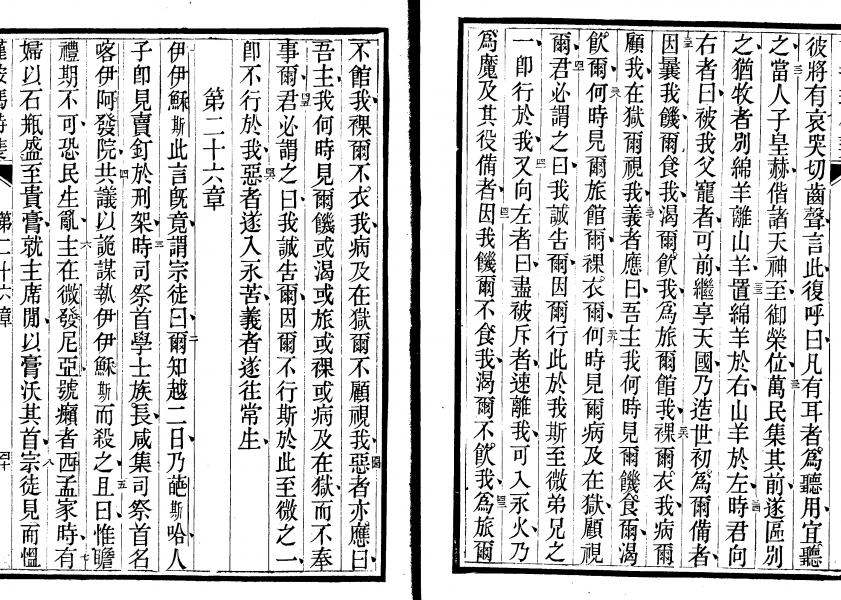 彼將有哀哭切齒聲言此復呼曰凡有耳者爲聽用宜聽
之當人子皇赫偕諸天神至御榮位萬民集其前遂區別
之猶牧者別綿羊離山羊置綿羊於右山羊於左時君向
右者曰被我父寵者可前繼享天國乃造世初爲爾備者
因曩我饑爾食我渴爾飲我爲旅爾館我裸爾衣我病爾
顧我在獄爾視我義者應曰吾主我何時見爾饑食爾渴
飲爾何時見爾旅館爾裸衣爾何時見爾病及在獄顧視
爾君必謂之曰我誠告爾因爾行此於我斯至微弟兄之
一卽行於我又向左者曰盡被斥者速離我可入永火乃
爲魔及其役備者因我饑爾不食我渴爾不飲我爲旅爾
不館我裸爾不衣我病及在獄爾不顧視我惡者亦應曰
吾主我何時見爾饑或渴或旅或裸或病及在獄而不奉
事爾君必謂之曰我誠告爾因爾不行斯於此至微之一
卽不行於我惡者遂入永苦義者遂往常生
第二十六章
伊伊穌斯此言旣竟謂宗徒曰爾知越二日乃葩斯哈人
子卽見賣釘於刑架時司祭首學士族長咸集司祭首名
喀伊阿發院共議以詭謀執伊伊穌斯而殺之且曰惟瞻
禮期不可恐民生亂主在微發尼亞號癩者西孟家時有
婦以石瓶盛至貴膏就主席間以膏沃其首宗徒見而慍
第二十六章